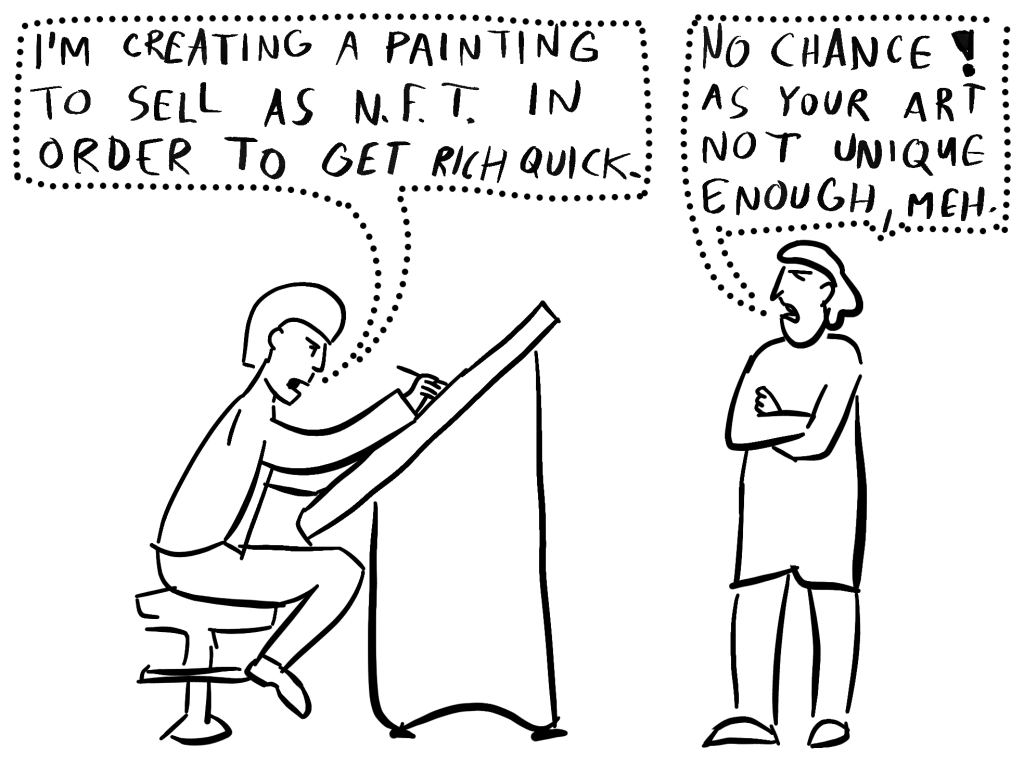 I'M CREATING A PAINTING
TO SELL AS N.F.T. IN
ORDER TO GET RICH QUICK.
NO CHANCE!
AS YOUR ART
NOT UNIQUE
ENOUGH, MEH.